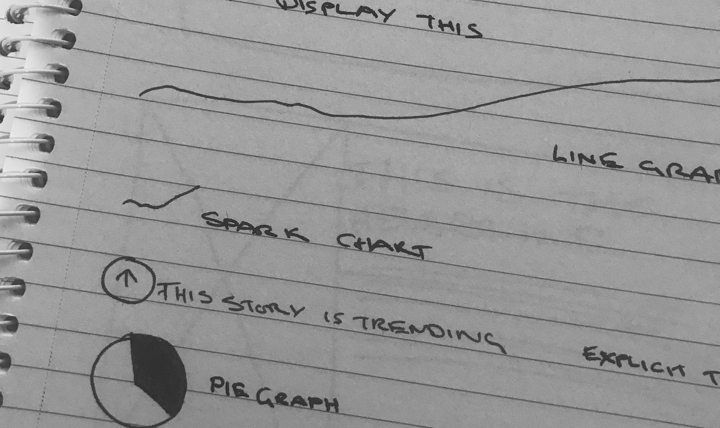 DISPLAY THIS
LINE
SPARK CHART
THIS STORY IS TRENDING
EXPLICIT
PIE GRAPH